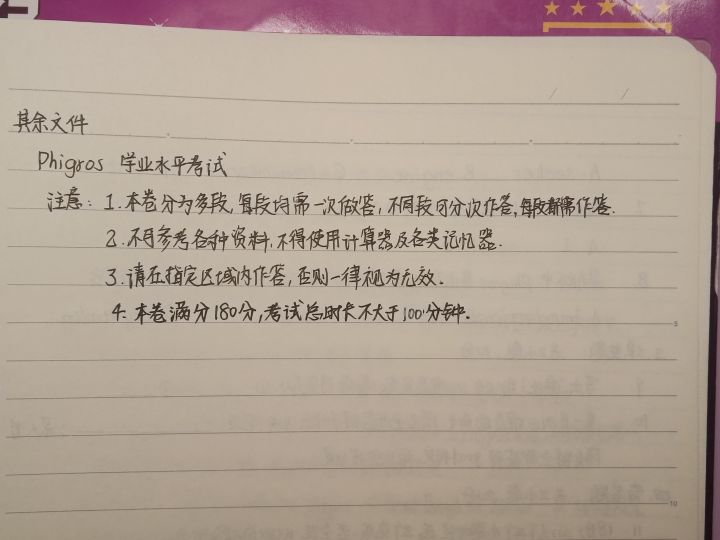 其余文件
Phigros 学业水平考试
注意: 1.本卷分为多段,每段均需一次做答,不同段可分次作答,每段都需作答.
2.不得参考各种资料,不得使用计算器及各类记忆器.
3.请在指定区域内作答,否则一律视为无效.
4.本卷满分180分,考试总时长不大于100分钟.
5
10